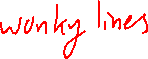 wonky lines